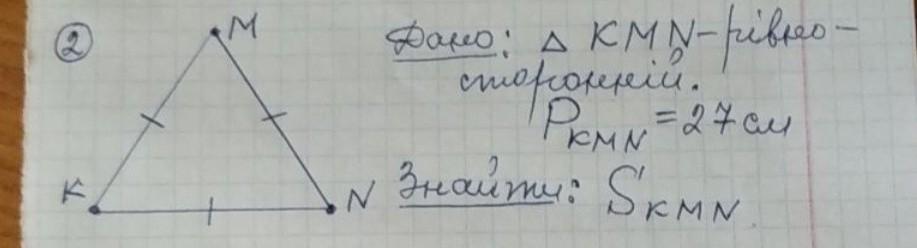 2
M
Дано: △ KMN - рівно-
сторонній.
P_KMN = 27 см
K
N
Знайти: S_KMN